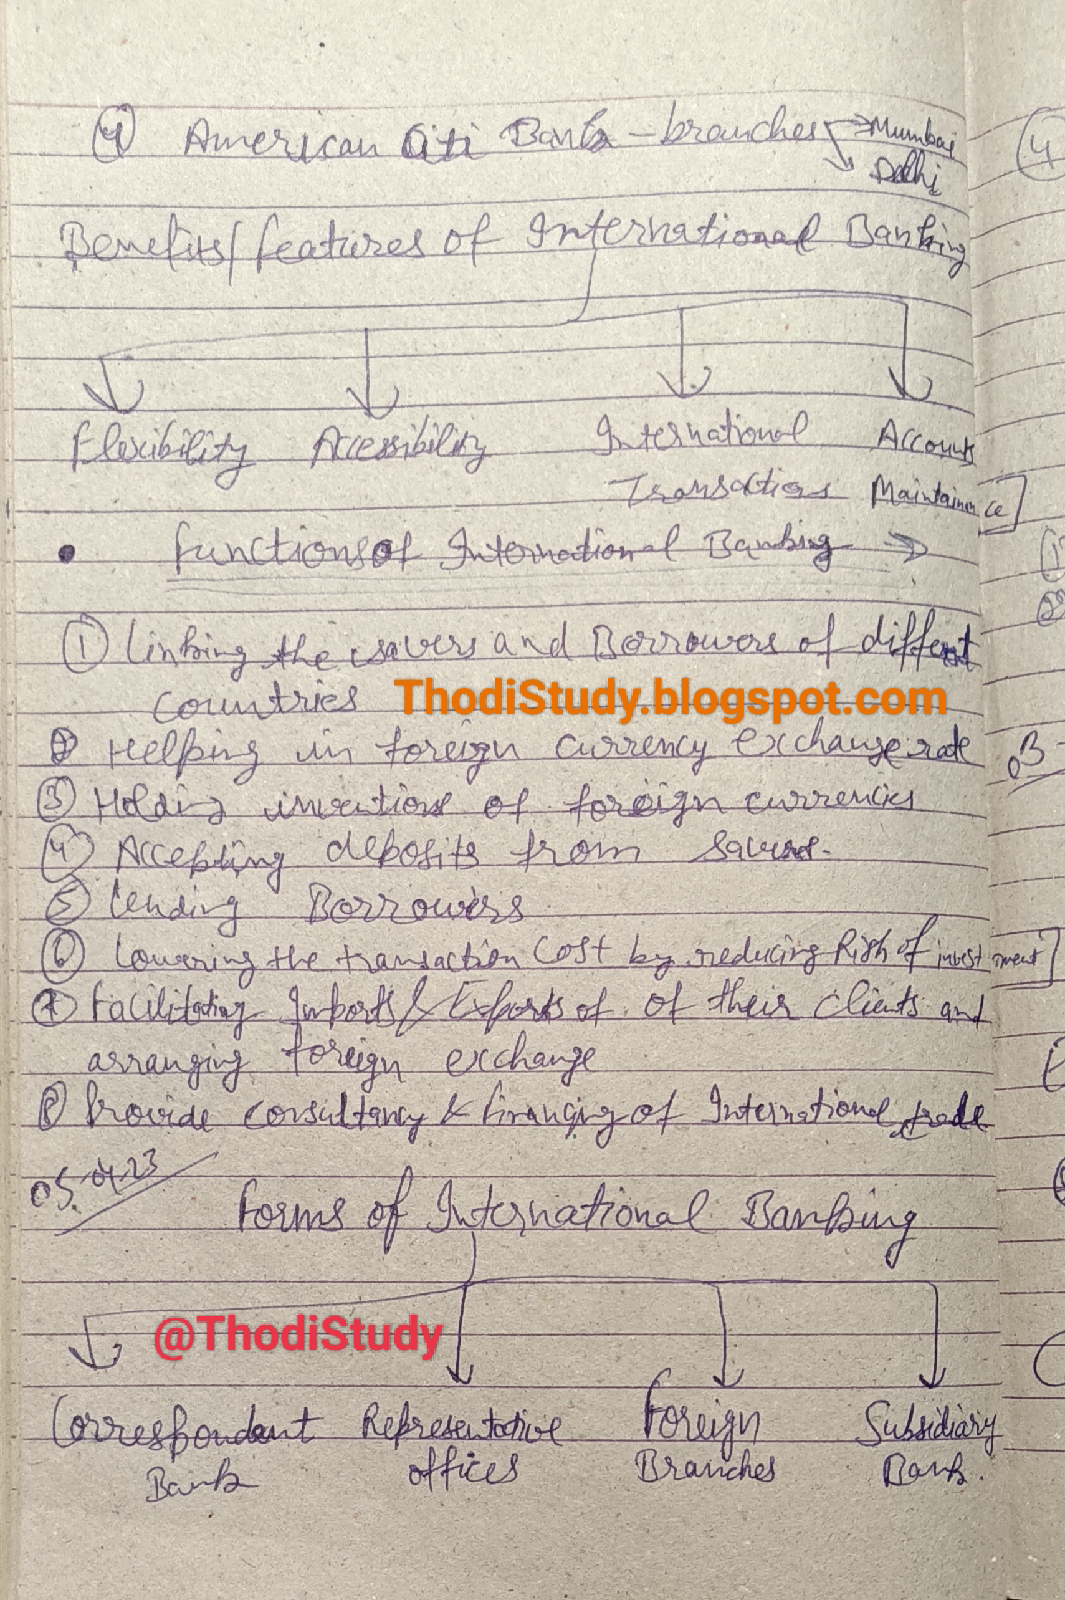 ④ American Citi Bank - branches → Mumbai
Delhi
Benefits/features of International Banking
Flexibility Accessibility International Accounts
Transactions Maintainence
• functions of International Banking →
① Linking the savers and Borrowers of different
countries ThodiStudy.blogspot.com
② Helping in foreign currency exchange rate
③ Holding of foreign currencies
④ Accepting deposits from savers.
⑤ Lending Borrowers
⑥ Lowering the transaction cost by reducing Risk of investment
⑦ Facilitating Imports & Exports of of their clients and
arranging foreign exchange
⑧ Provide consultancy & financing of International trade
05.04.23
Forms of International Banking
@ThodiStudy
Correspondant Representative Foreign Subsidiary
Bank offices Branches Bank.